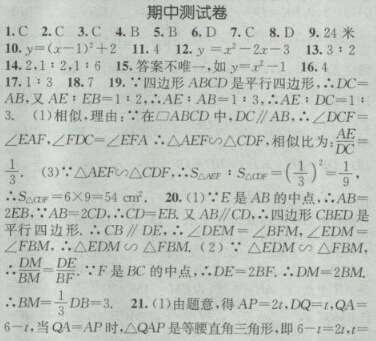 期中测试卷
1.C 2.C 3.C 4.B 5.B 6.D 7.C 8.D 9.24 米
10.y=(x-1)²+2 11.4 12.y=x²-2x-3 13.3:2
14.2,1:2,1:6 15.答案不唯一,如 y=x²-1 16.4
17.1:3 18.7 19.∵四边形 ABCD 是平行四边形,∴DC=
AB,又 AE:EB=1:2,∴AE:AB=1:3,∴AE:DC=1:
3. (1)相似,理由:∵在▱ABCD 中,DC∥AB,∴∠DCF=
∠EAF,∠FDC=∠EFA ∴△AEF∽△CDF,相似比为:AE/DC=
1/3. (3)∵△AEF∽△CDF,∴S△AEF:S△CDF=(1/3)²=1/9,
∴S△CDF=6×9=54 cm². 20.(1)∵E 是 AB 的中点,∴AB=
2EB,∵AB=2CD,∴CD=EB.又 AB∥CD,∴四边形 CBED 是
平行四边形.∴CB∥DE,∴∠DEM=∠BFM,∠EDM=
∠FBM,∴△EDM∽△FBM. (2)∵△EDM∽△FBM,
∴DM/BM=DE/BF.∵F 是 BC 的中点,∴DE=2BF.∴DM=2BM.
∴BM=1/3DB=3. 21.(1)由题意,得 AP=2t,DQ=t,QA=
6-t,当 QA=AP 时,△QAP 是等腰直角三角形,即 6-t=2t,t=